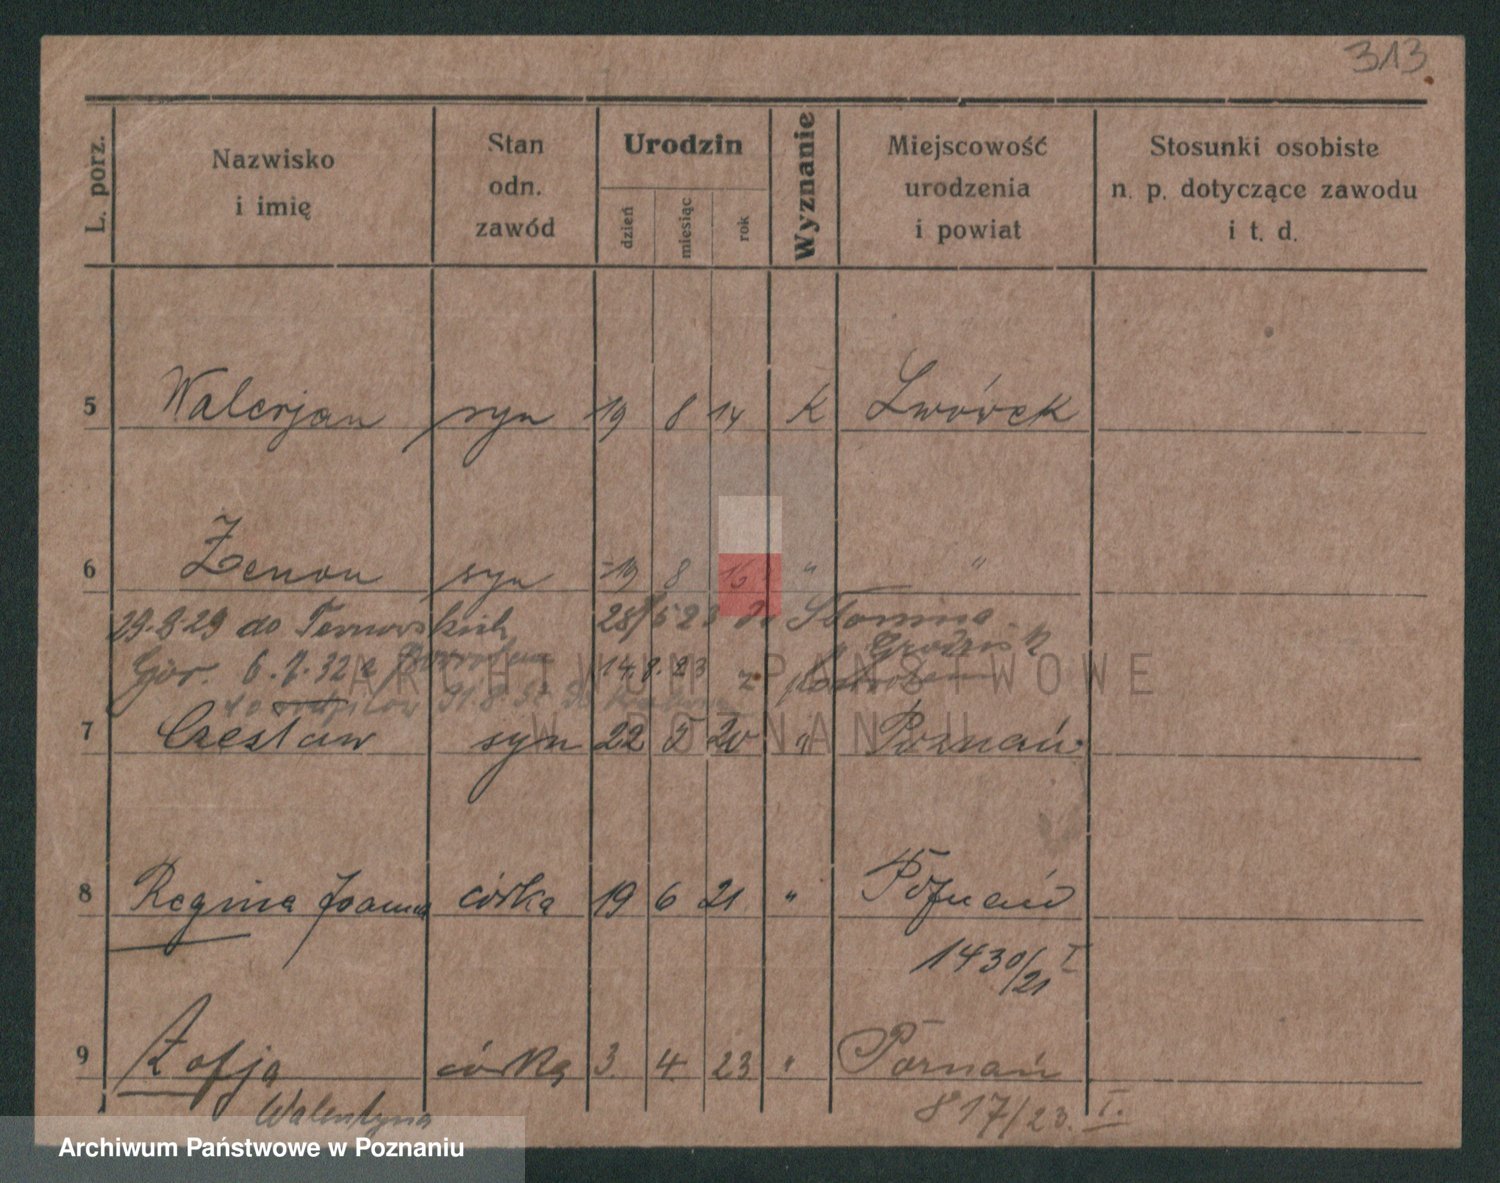 313
L. porz.
Nazwisko
i imię
Stan
odn.
zawód
Urodzin
dzień
miesiąc
rok
Wyznanie
Miejscowość
urodzenia
i powiat
Stosunki osobiste
n. p. dotyczące zawodu
i t. d.
5 Walerjan syn 19 8 14 K Lwówek
6 Zenon syn 19 8 15 " "
29.8.29 do 28/5 23
Gór. 6.1.32 z 14.8.23 z
31.8.32
7 Czesław syn 22 5 20 " Poznań
8 Regina Joanna córka 19 6 21 " Poznań
1430/21 I
9 Zofja córka 3. 4. 23 " Poznań
Walentyna 817/23. I.
ARCHIWUM PAŃSTWOWE
W POZNANIU
Archiwum Państwowe w Poznaniu